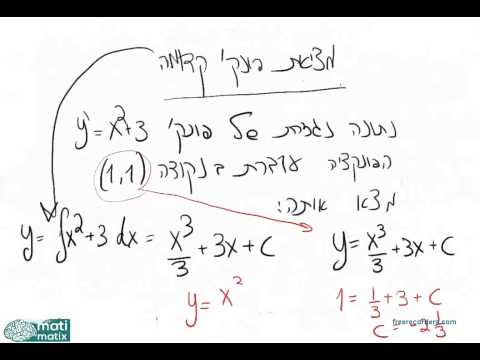 מציאת פונק' קדומה
נתונה נגזרת של פונק' y' = x²+3
הפונקציה עוברת בנקודה (1,1)
מצא אותה:
y = ∫x²+3 dx = x³/3 + 3x + c
y = x³/3 + 3x + c
y = x²
1 = 1/3 + 3 + c
c = -2 1/3
mati
matix